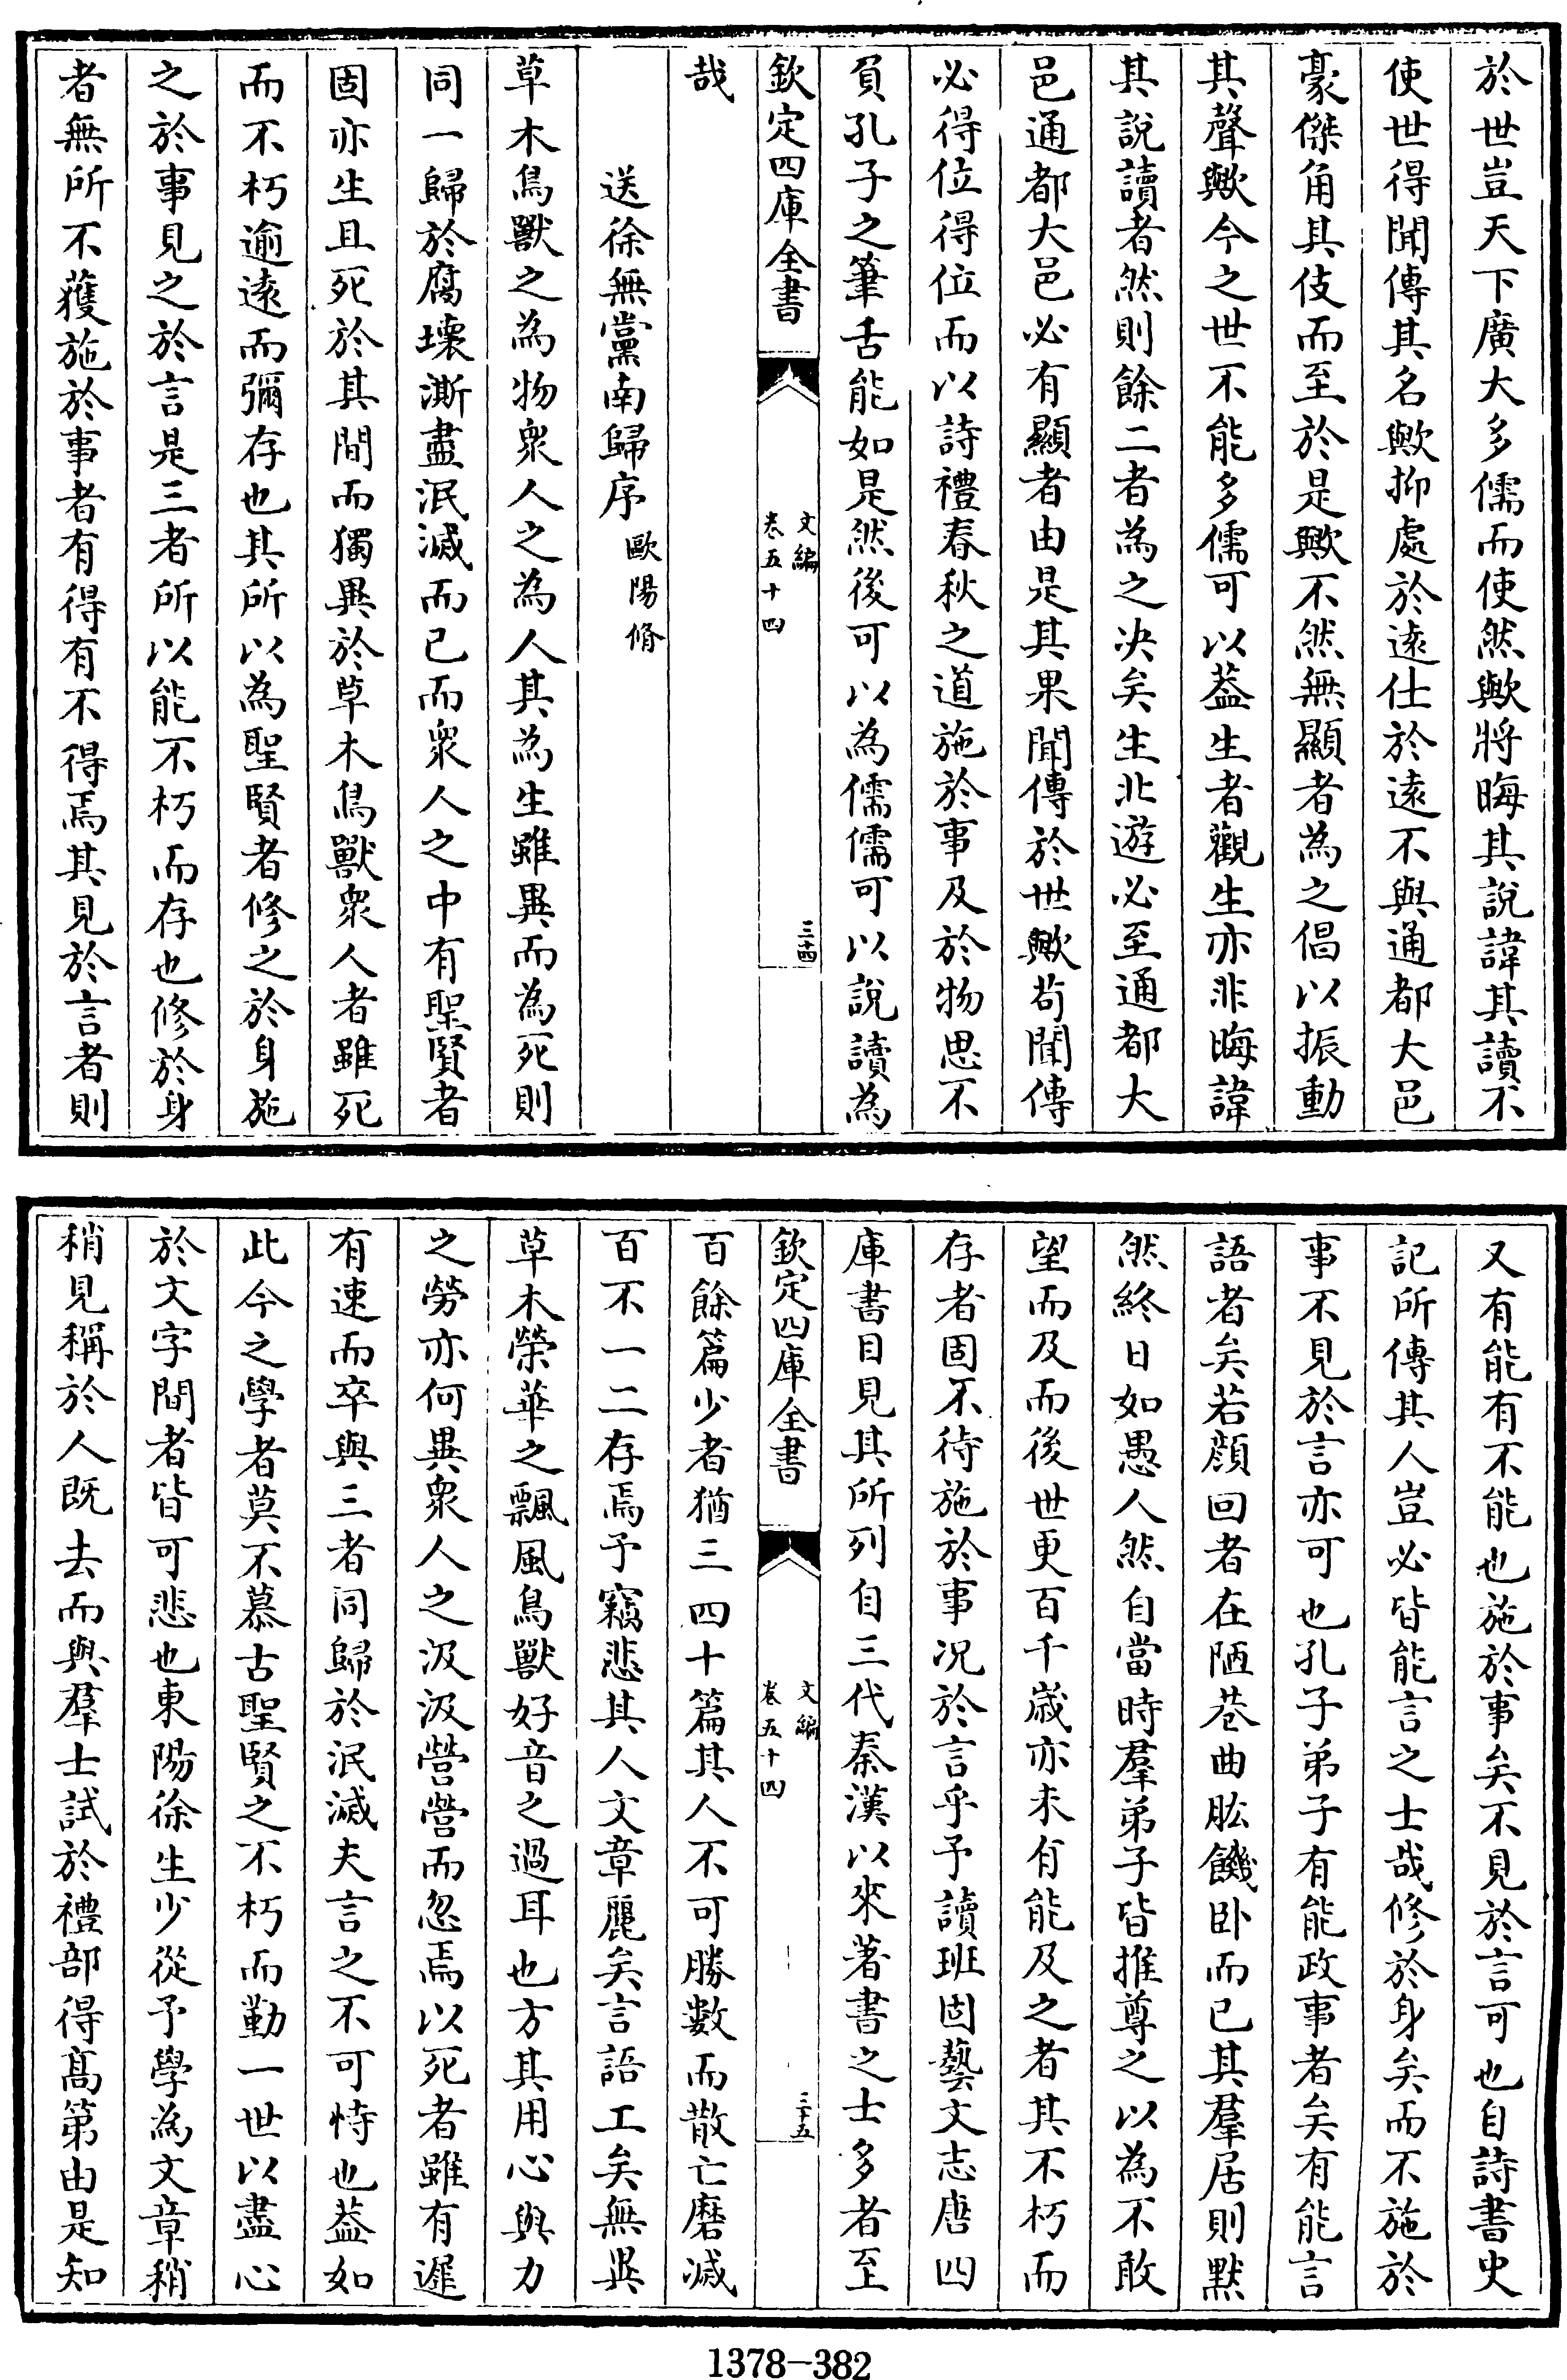 於世豈天下廣大多儒而使然歟將晦其說諱其讀不
使世得聞傳其名歟抑處於逺仕於逺不與通都大邑
豪傑角其伎而至於是歟不然無顯者為之倡以振動
其聲歟今之世不能多儒可以葢生者觀生亦非晦諱
其說讀者然則餘二者為之决矣生北遊必至通都大
邑通都大邑必有顯者由是其果聞傳於世歟茍聞傳
必得位得位而以詩禮春秋之道施於事及於物思不
負孔子之筆舌能如是然後可以為儒儒可以說讀為
欽定四庫全書
文編
卷五十四
三十四
哉
送徐無黨南歸序
歐陽脩
草木鳥獸之為物衆人之為人其為生雖異而為死則
同一歸於腐壊澌盡泯滅而已而衆人之中有聖賢者
固亦生且死於其間而獨異於草木鳥獸衆人者雖死
而不朽逾逺而彌存也其所以為聖賢者修之於身施
之於事見之於言是三者所以能不朽而存也修於身
者無所不獲施於事者有得有不得焉其見於言者則
又有能有不能也施於事矣不見於言可也自詩書史
記所傳其人豈必皆能言之士哉修於身矣而不施於
事不見於言亦可也孔子弟子有能政事者矣有能言
語者矣若顔回者在陋巷曲肱饑卧而已其羣居則黙
然終日如愚人然自當時羣弟子皆推尊之以為不敢
望而及而後世更百千嵗亦未有能及之者其不朽而
存者固不待施於事况於言乎予讀班固藝文志唐四
庫書目見其所列自三代秦漢以來著書之士多者至
欽定四庫全書
文編
卷五十四
三十五
百餘篇少者猶三四十篇其人不可勝數而散亡磨滅
百不一二存焉予竊悲其人文章麗矣言語工矣無異
草木榮華之飄風鳥獸好音之過耳也方其用心與力
之勞亦何異衆人之汲汲營營而忽焉以死者雖有遲
有速而卒與三者同歸於泯滅夫言之不可恃也葢如
此今之學者莫不慕古聖賢之不朽而勤一世以盡心
於文字間者皆可悲也東陽徐生少從予學為文章稍
稍見稱於人既去而與羣士試於禮部得髙第由是知
1378-382